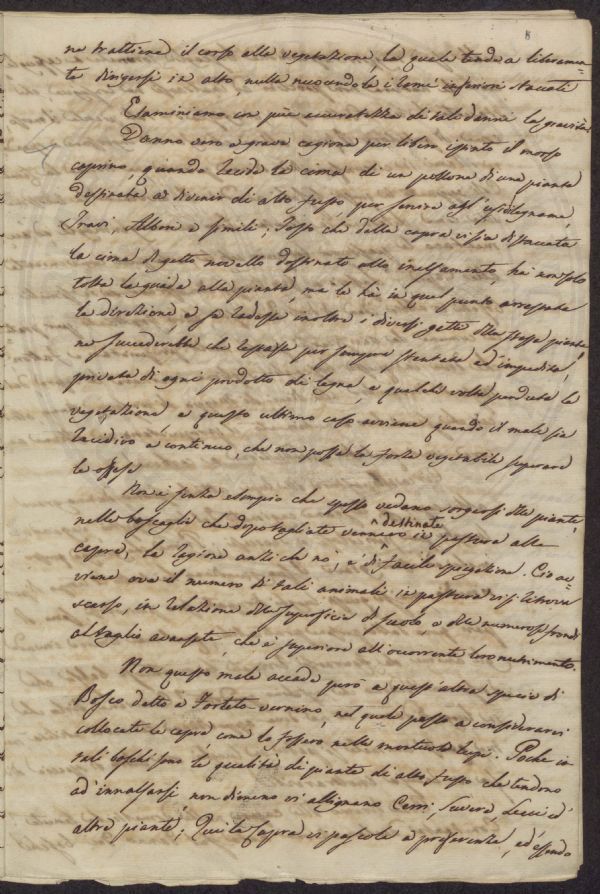 8
ne trattiene il corso alla vegetazione, la quale tende a liberamen=
te dirigersi in alto, nulla nuocendole i rami inferiori staccati
Esaminiamo con più accuratezza di tale danno la gravità
Danno vero e grave cagiona per libero istinto il morso
caprino, quando recide la cima di un pollone di una pianta
destinata a divenir di alto fusto, per servire agl'usi di legname,
Travi, Alberi e simili; Tosto che dalla capra vi sia distaccata
la cima di getto novello destinato allo innalzamento, ha non solo
tolta la guida alla pianta, ma le ha in quel punto arrestata
la direzione, e se cadesse inoltre i diversi getti della stessa pianta
ne succederebbe che restasse per sempre stentata ed impedita,
privata di ogni prodotto di legna, e qualche volta perduta la
vegetazione e questo ultimo caso avviene quando il male sia
recidivo e continuo, che non possa la forza vegetabile superare
le offese
Non è senza esempio che spesso vedano sorgersi delle piante
nelle boscaglie che dopo tagliate vennero destinate in pastura alle
capre, la ragione anzi che nò, è di facile spiegazione. Ciò av=
viene ove il numero di tali animali in pastura vi si ritrova
scarso, in relazione della superficie di suolo, e delle numerose frondi
al taglio avanzate, che è superiore all'occorrente loro nutrimento.
Non questo male accade però a quest'altra specie di
Bosco detto a Forteto vernino, nel quale passo a considerarvi
collocate le capre come lo fossero nelle montuose rupi. Poche in
tali boschi sono le qualità di piante di alto fusto che tendono
ad'innalzarsi, non dimeno vi allignano Cerri, Suvere, Lecci ed
altre piante; Qui la Capra vi pascola a preferenza, ed'essendo